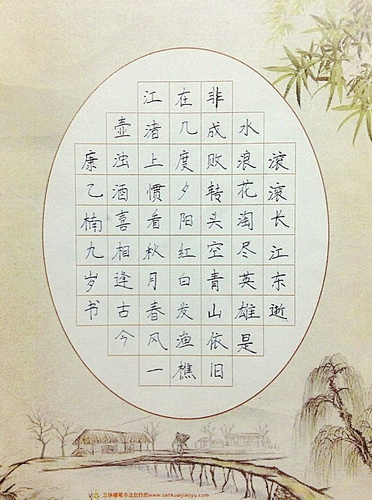 滚滚长江东逝
水浪花淘尽英雄是
非成败转头空青山依旧
在几度夕阳红白发渔樵
江渚上惯看秋月春风一
壶浊酒喜相逢古今
康乙楠九岁书
硬笔书法创作纸